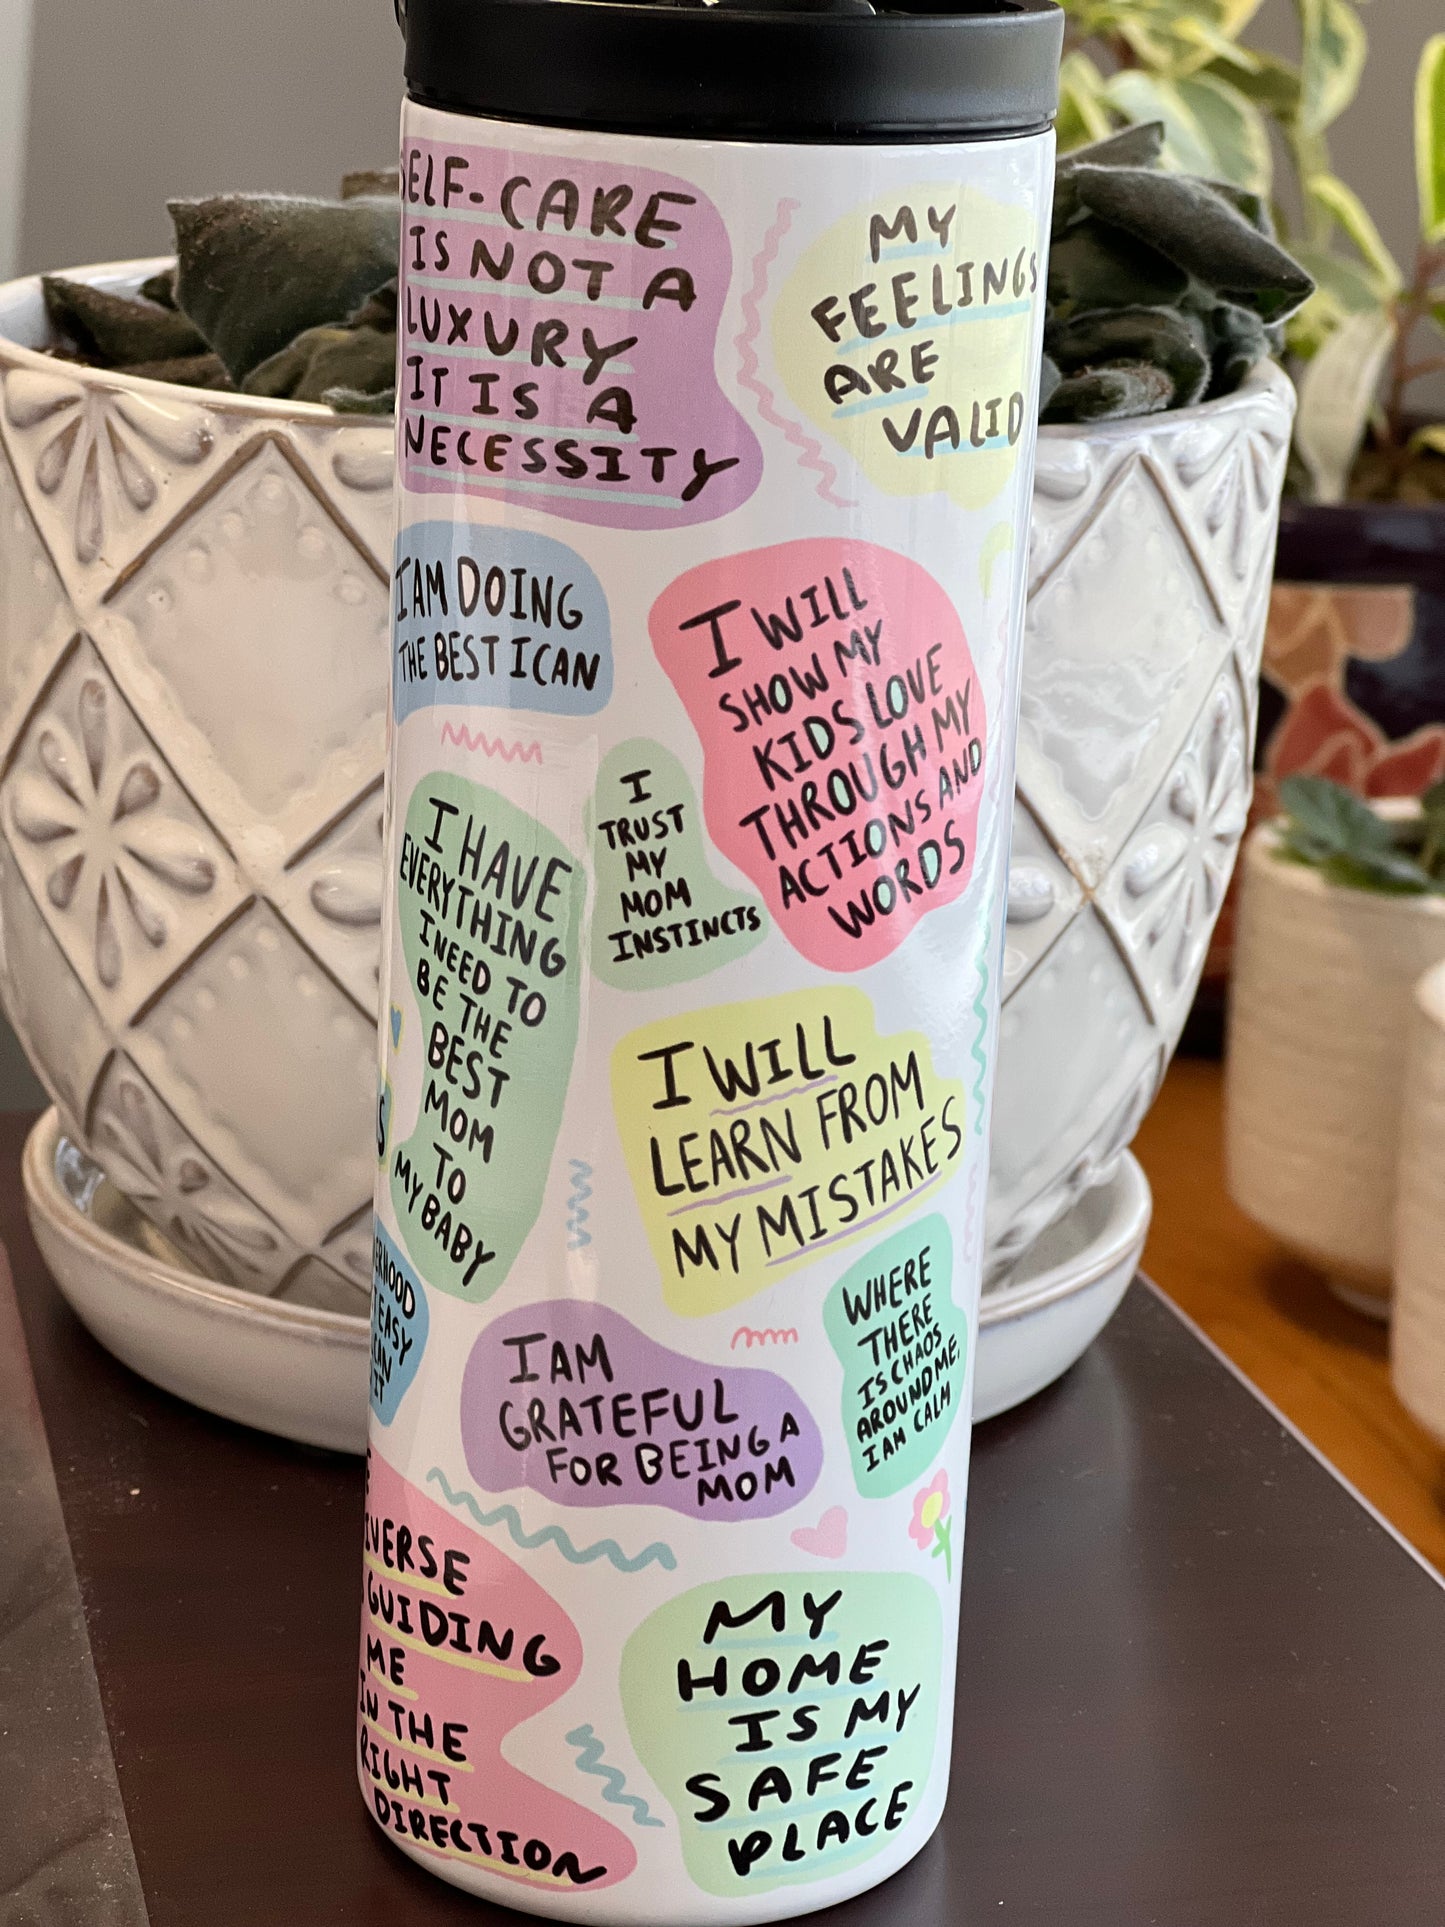 SELF-CARE
IS NOT A
LUXURY
IT IS A
NECESSITY
MY
FEELINGS
ARE
VALID
I AM DOING
THE BEST I CAN
I WILL
SHOW MY
KIDS LOVE
THROUGH MY
ACTIONS AND
WORDS
I
TRUST
MY
MOM
INSTINCTS
I HAVE
EVERYTHING
I NEED TO
BE THE
BEST
MOM
TO
MY BABY
I WILL
LEARN FROM
MY MISTAKES
WHERE
THERE
IS CHAOS
AROUND ME,
I AM CALM
ERHOOD
EASY
CAN
IT
I AM
GRATEFUL
FOR BEING A
MOM
IVERSE
GUIDING
ME
IN THE
RIGHT
DIRECTION
MY
HOME
IS MY
SAFE
PLACE